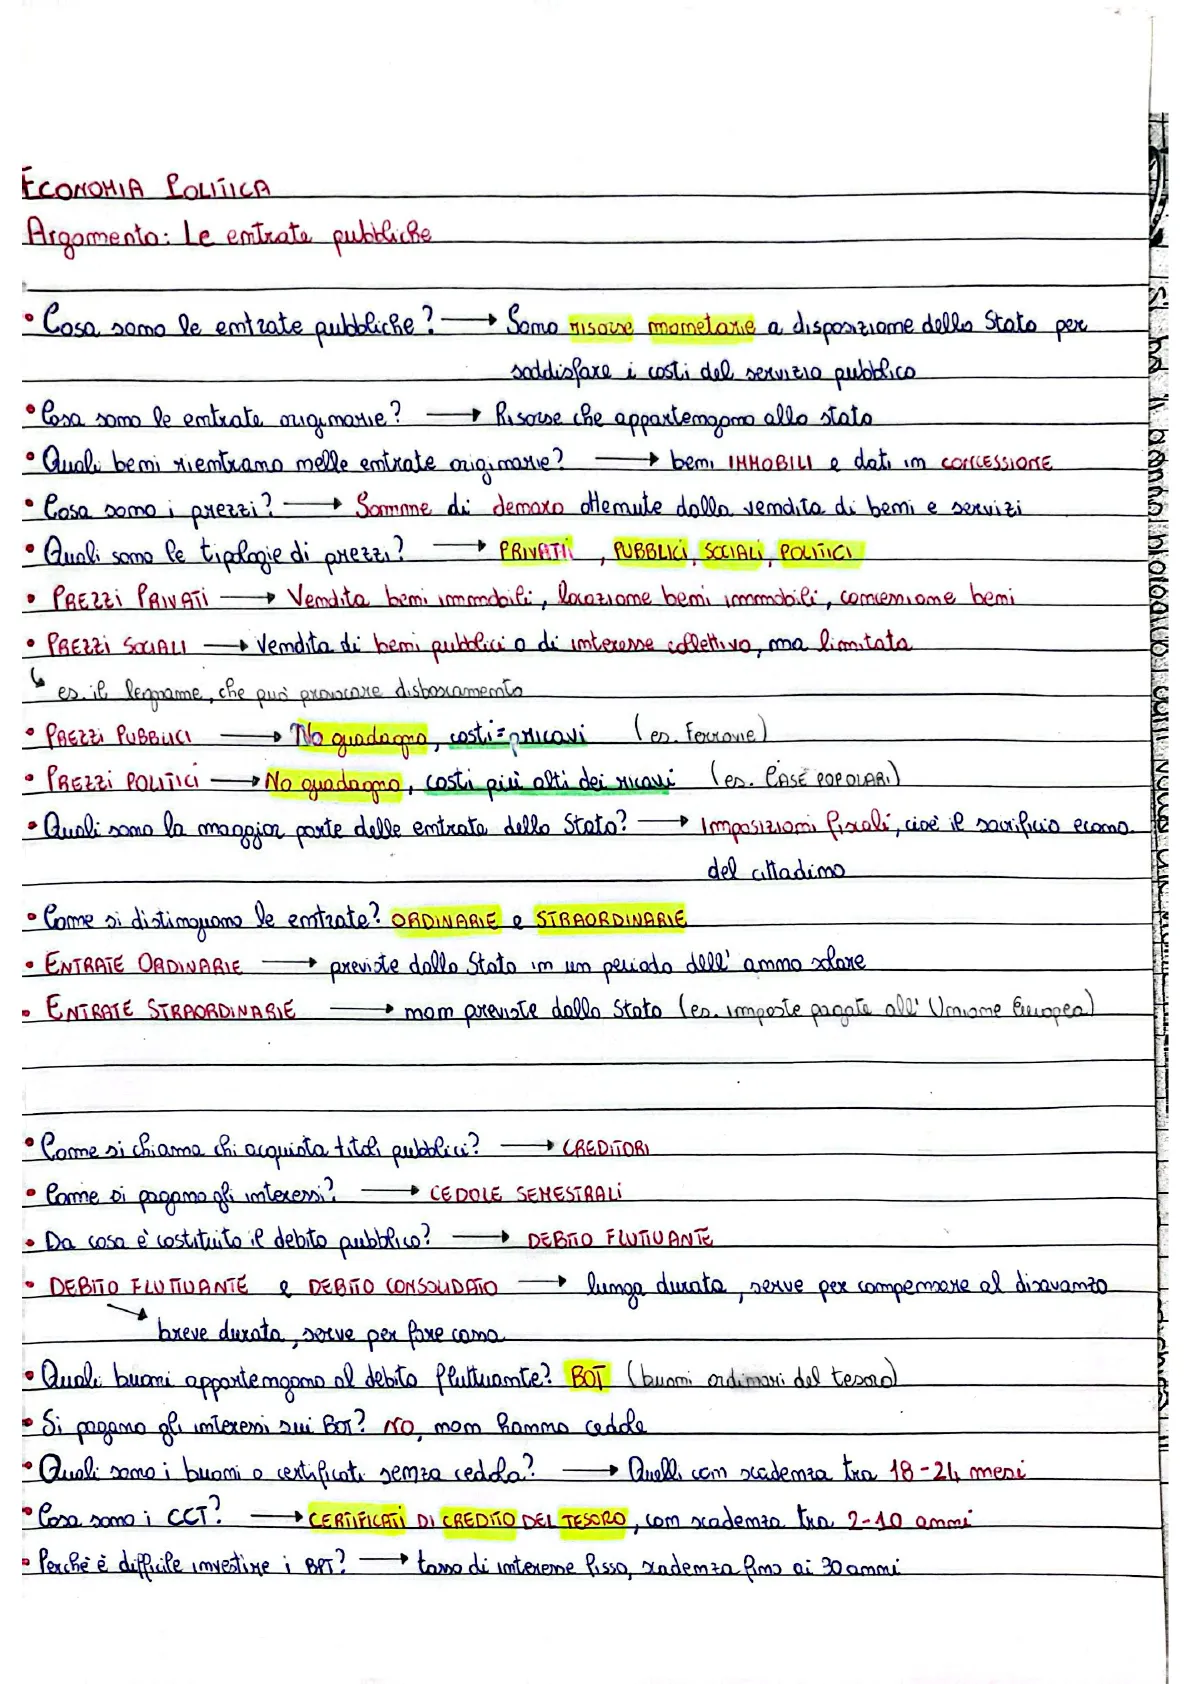 ECONOMIA POLITICA
Argomento: Le entrate pubbliche
• Cosa sono le entrate pubbliche? → Sono risorse monetarie a disposizione dello Stato per
soddisfare i costi del servizio pubblico
• Cosa sono le entrate originarie? → Risorse che appartengono allo stato
• Quali beni rientrano nelle entrate originarie? → beni IMMOBILI e dati in CONCESSIONE
• Cosa sono i prezzi? → Somme di denaro ottenute dalla vendita di beni e servizi
• Quali sono le tipologie di prezzi? → PRIVATI, PUBBLICI, SOCIALI, POLITICI
• PREZZI PRIVATI → Vendita beni immobili, locazione beni immobili, concessione beni
• PREZZI SOCIALI → Vendita di beni pubblici o di interesse collettivo, ma limitata
↳ es. il legname, che può provocare disboscamento
• PREZZI PUBBLICI → No guadagno, costi = ricavi (es. Ferrovie)
• PREZZI POLITICI → No guadagno, costi più alti dei ricavi (es. CASE POPOLARI)
• Quali sono la maggior parte delle entrate dello Stato? → Imposizioni fiscali, cioè il sacrificio econo.
del cittadino
• Come si distinguono le entrate? ORDINARIE e STRAORDINARIE
• ENTRATE ORDINARIE → previste dallo Stato in un periodo dell'anno solare
• ENTRATE STRAORDINARIE → non previste dallo Stato (es. imposte pagate all'Unione Europea)
• Come si chiama chi acquista titoli pubblici? → CREDITORI
• Come si pagano gli interessi? → CEDOLE SEMESTRALI
• Da cosa è costituito il debito pubblico? → DEBITO FLUTTUANTE
• DEBITO FLUTTUANTE e DEBITO CONSOLIDATO → lunga durata, serve per compensare al disavanzo
breve durata, serve per fare cassa
• Quali buoni appartengono al debito fluttuante? BOT (buoni ordinari del tesoro)
• Si pagano gli interessi sui BOT? NO, non hanno cedole
• Quali sono i buoni o certificati senza cedola? → Quelli con scadenza tra 18-24 mesi
• Cosa sono i CCT? → CERTIFICATI DI CREDITO DEL TESORO, con scadenza tra 2-10 anni
• Perchè è difficile investire i BPT? → tasso di interesse fisso, scadenza fino ai 30 anni